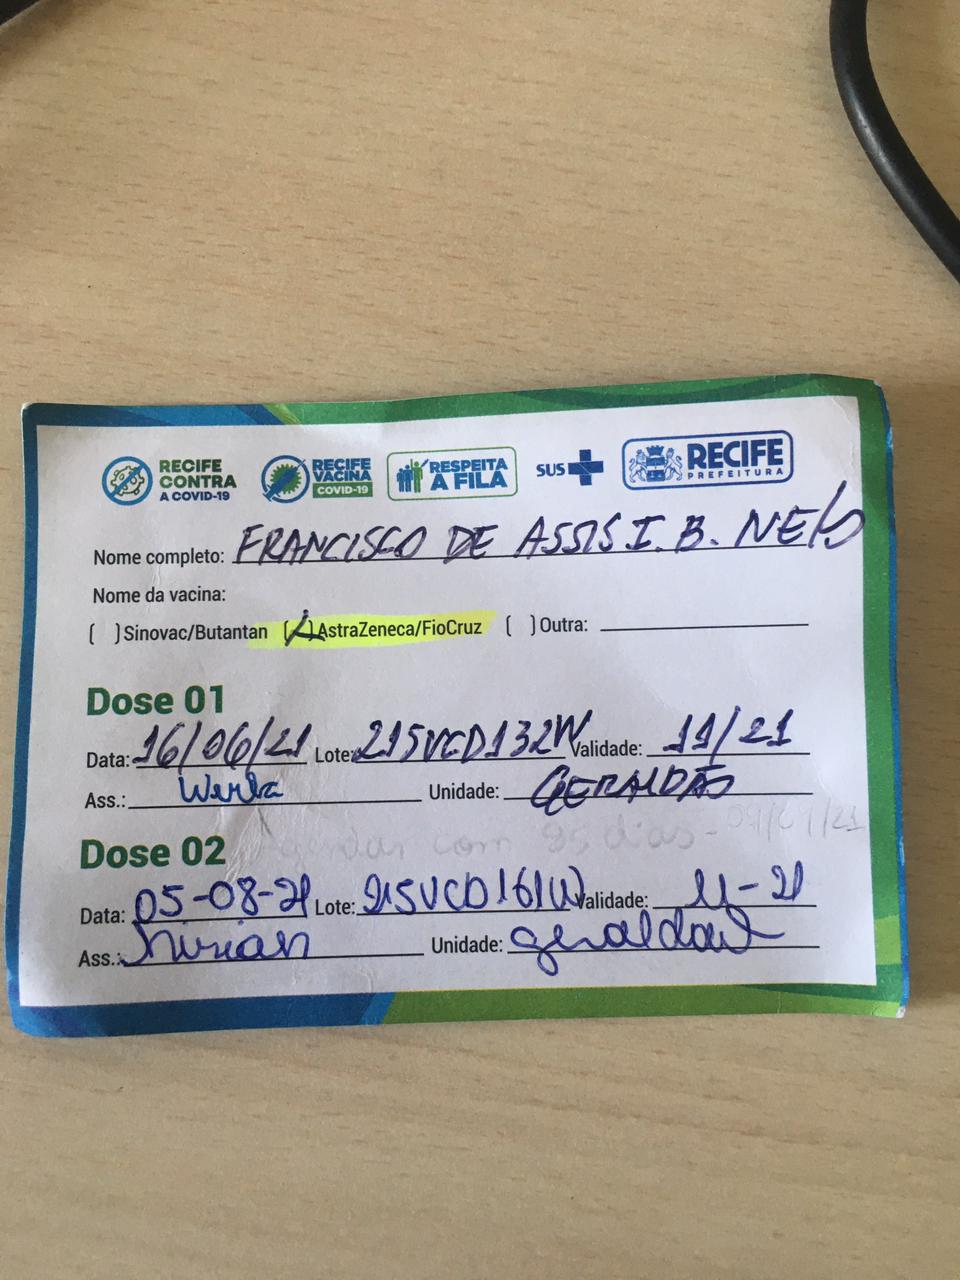 RECIFE CONTRA A COVID-19 RECIFE VACINA COVID-19 RESPEITA A FILA SUS RECIFE PREFEITURA
Nome completo: FRANCISCO DE ASSIS I. B. NETO
Nome da vacina:
( ) Sinovac/Butantan (X) AstraZeneca/FioCruz ( ) Outra:
Dose 01
Data: 16/06/21 Lote: 215VCD132W Validade: 11/21
Ass.: Unidade: GERALDÃO
Agendar com 85 dias - 09/09/21
Dose 02
Data: 05-08-21 Lote: 215VCD161W Validade: 11-21
Ass.: Mirian Unidade: geraldão